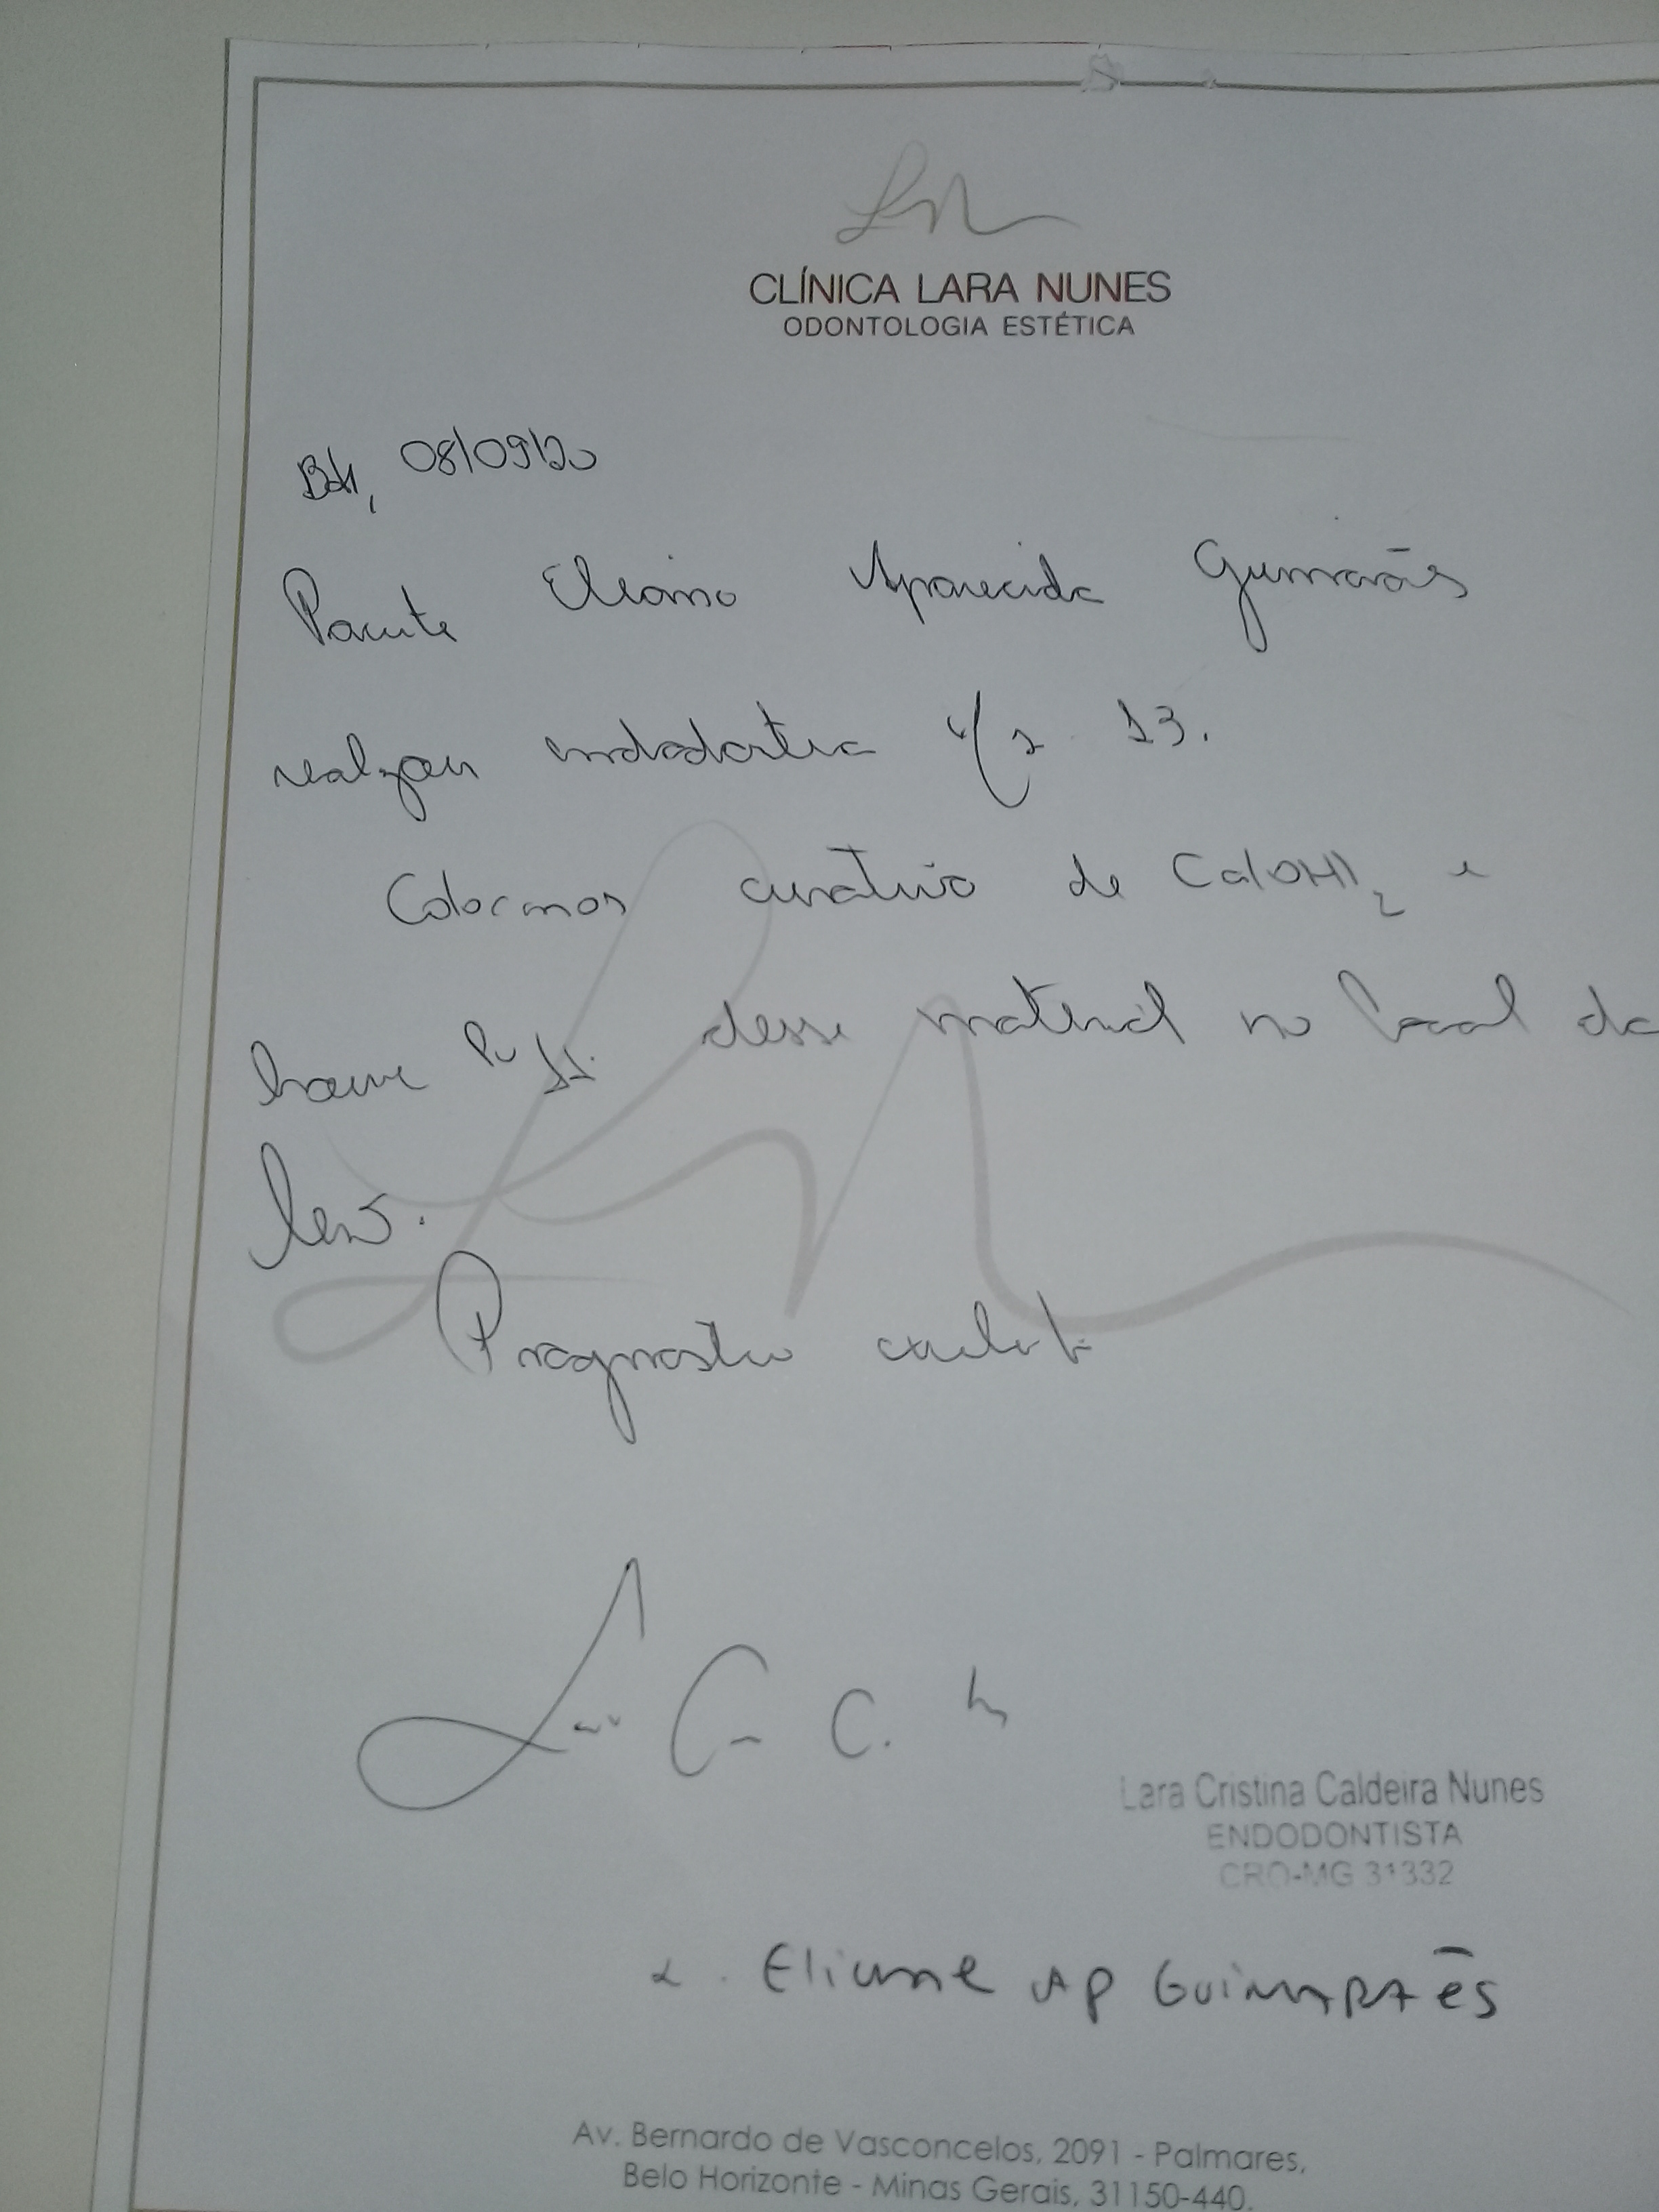 CLÍNICA LARA NUNES
ODONTOLOGIA ESTÉTICA
BH, 08/09/20
Paciente Eliane Aparecida Guimarães
realizou endodontia 13.
Colocamos curativo de Ca(OH)2 e
houve desse material no local da
lesão.
Prognóstico excelente
Lara Cristina Caldeira Nunes
ENDODONTISTA
CRO-MG 31332
Eliane AP GUIMARÃES
Av. Bernardo de Vasconcelos, 2091 - Palmares,
Belo Horizonte - Minas Gerais, 31150-440.